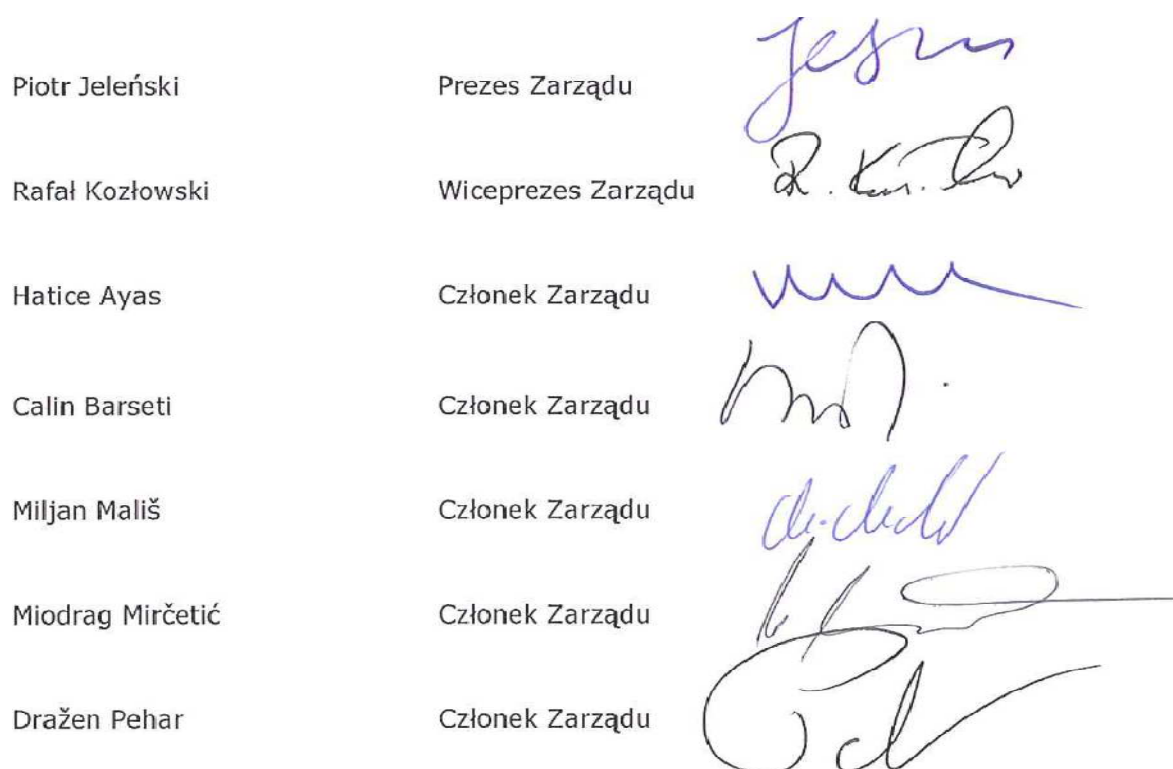 Piotr Jeleński Prezes Zarządu
Rafał Kozłowski Wiceprezes Zarządu
Hatice Ayas Członek Zarządu
Calin Barseti Członek Zarządu
Miljan Mališ Członek Zarządu
Miodrag Mirčetić Członek Zarządu
Dražen Pehar Członek Zarządu